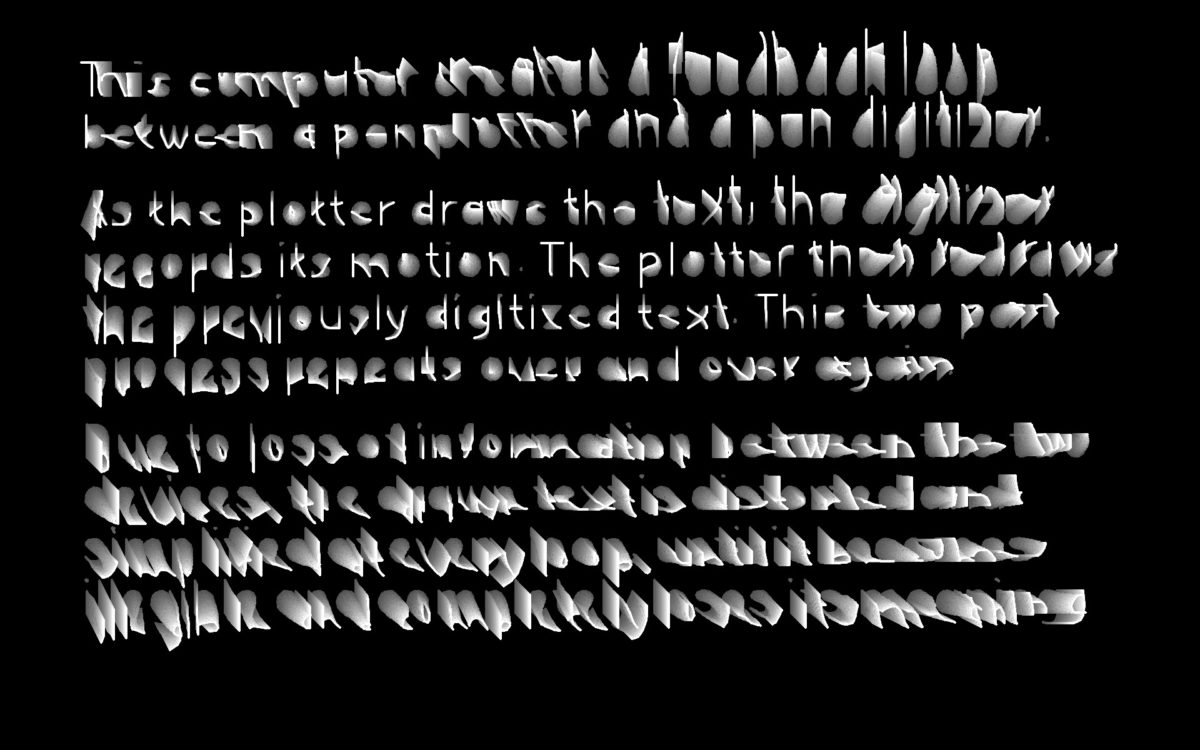 This computer creates a feedback loop
between a pen plotter and a pen digitizer.
As the plotter draws the text, the digitizer
records its motion. The plotter then redraws
the previously digitized text. This two part
process repeats over and over again.
Due to loss of information between the two
devices, the drawn text is distorted and
simplified at every loop, until it becomes
illegible and completely loses its meaning